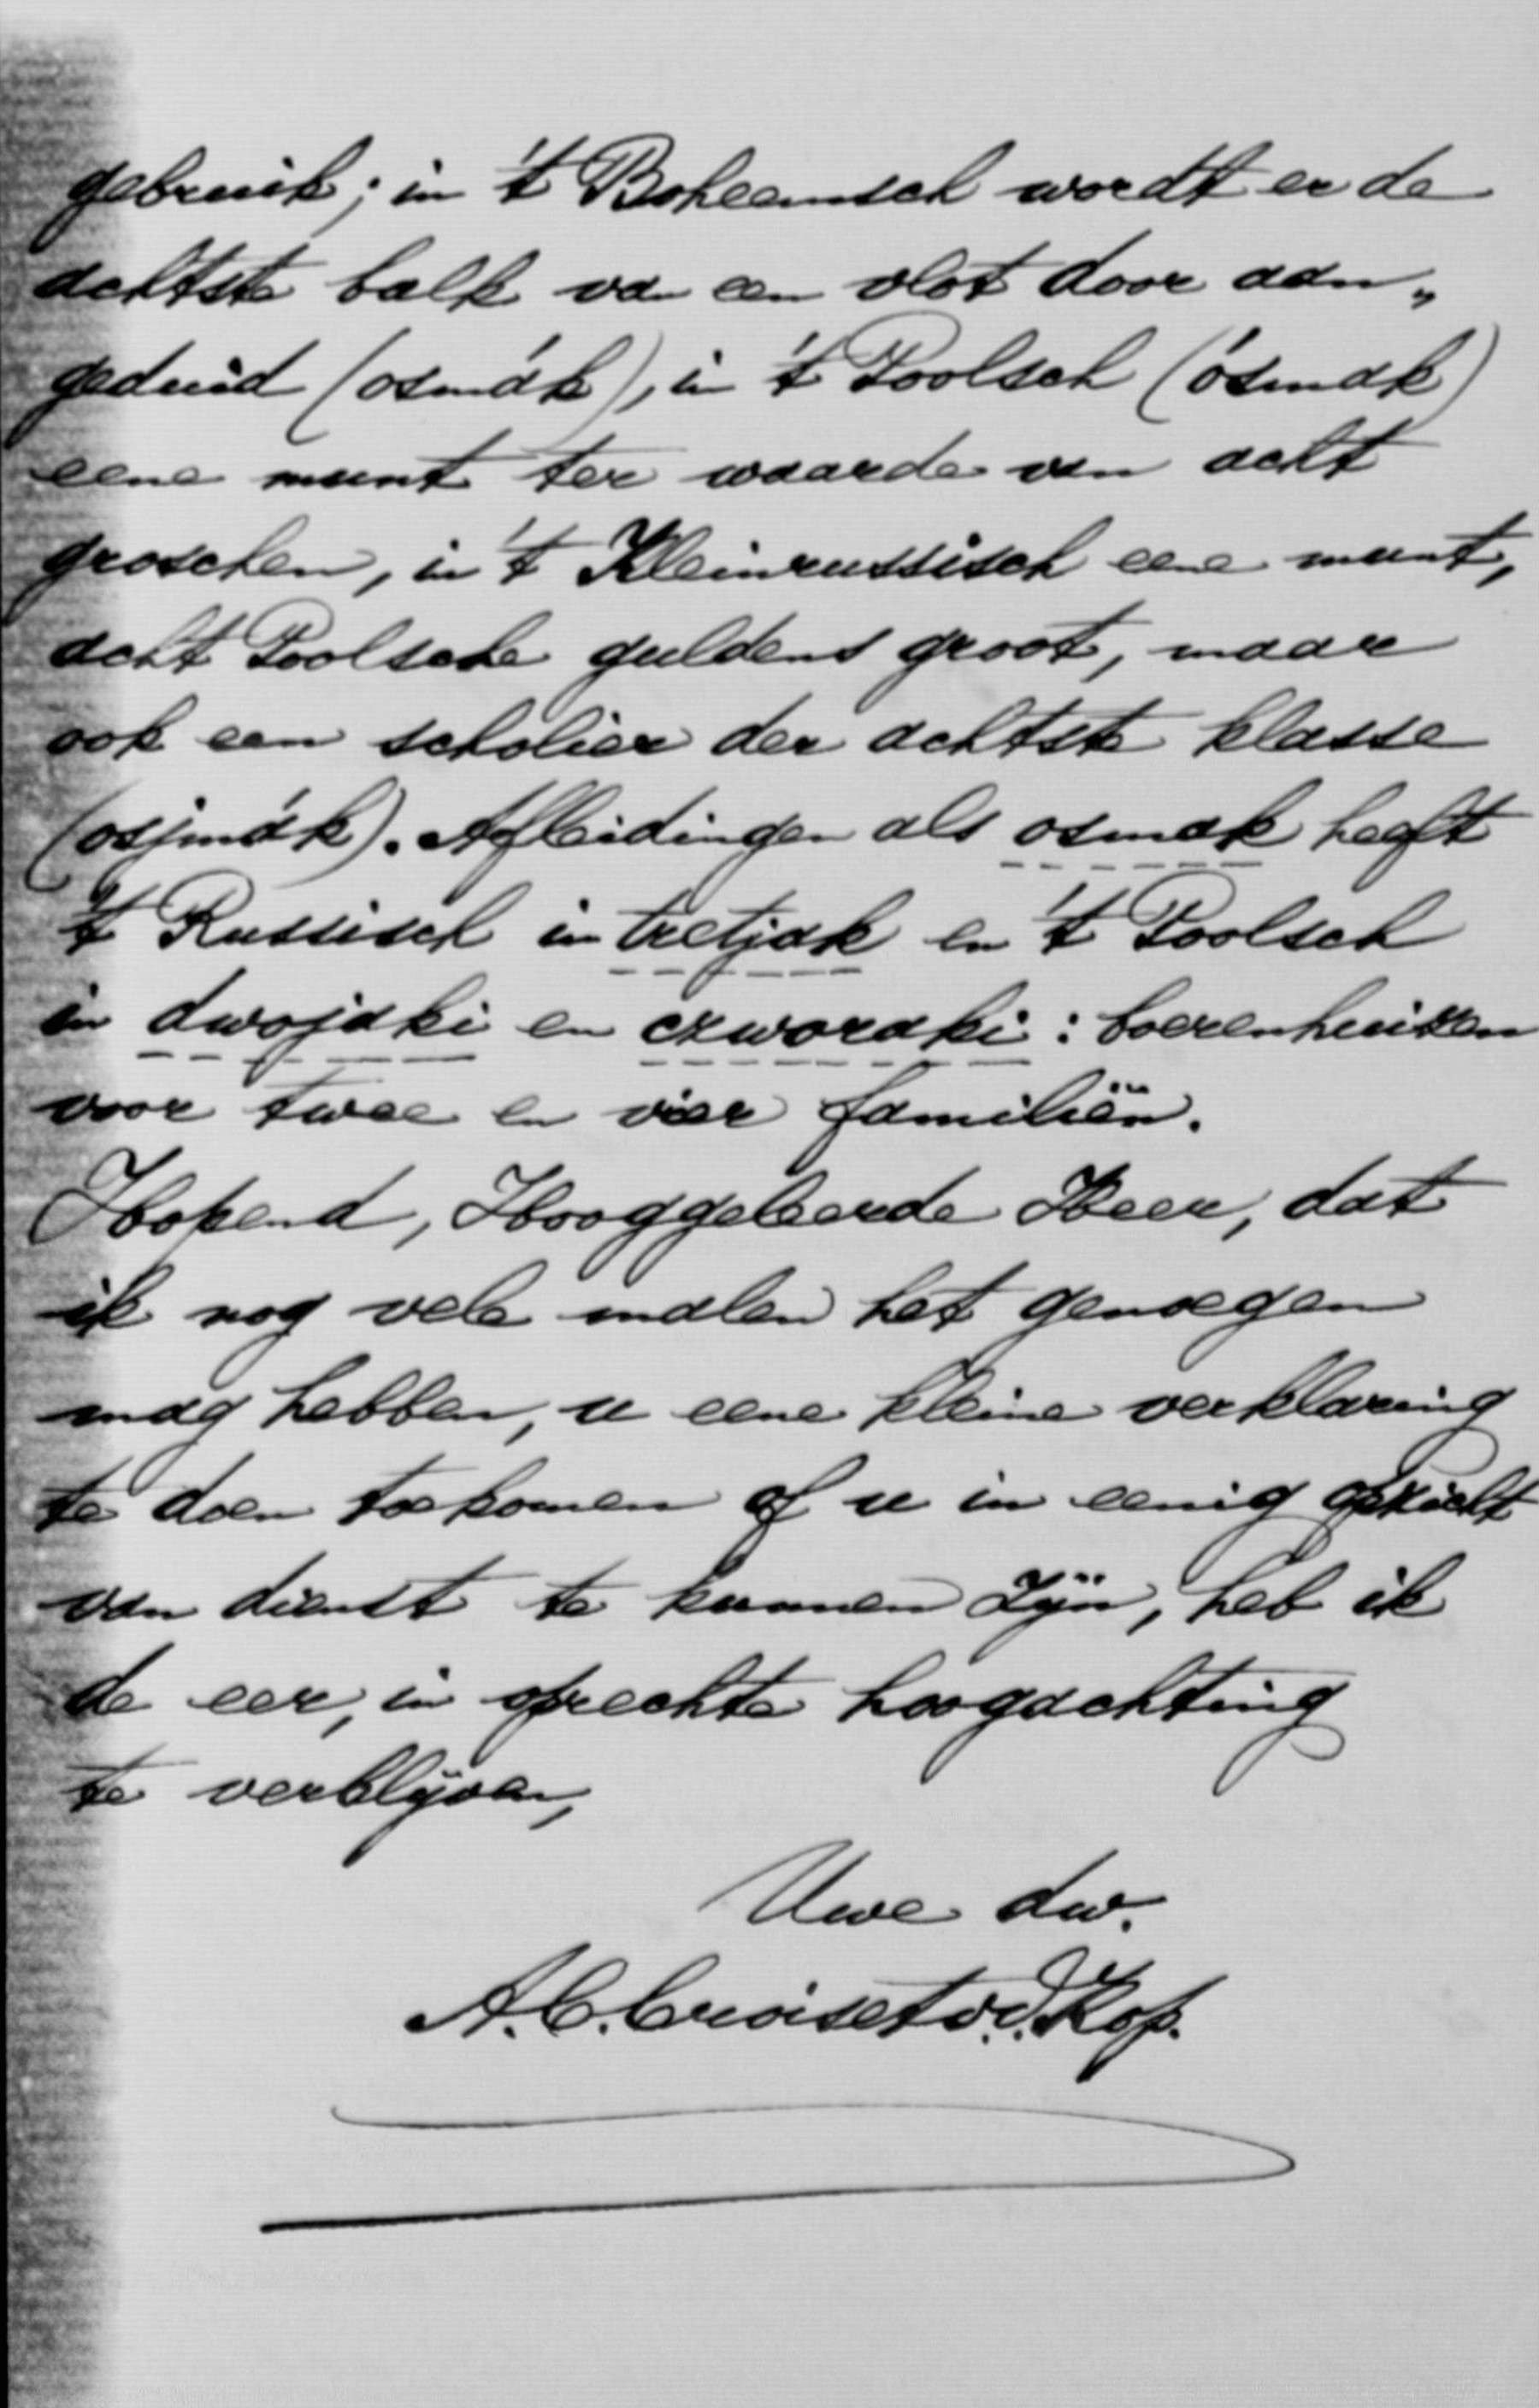 gebruik; in 't Boheemsch wordt er de
achtste balk van een vlot door aan„
geduid (osmák), in 't Poolsch (ósmak)
eene munt ter waarde van acht
groschen, in 't Kleinrussisch eene munt,
acht Poolsche guldens groot, maar
ook een scholier der achtste klasse
(osjmák). Afleidingen als osmak heeft
't Russisch in tretjak en 't Poolsch
in dwojaki en czworaki: boerenhuizen
voor twee en vier familiën.
Hopend, Hooggeleerde Heer, dat
ik nog vele malen het genoegen
mag hebben, u eene kleine verklaring
te doen toekomen of u in eenig opzicht
van dienst te kunnen zijn, heb ik
de eer, in oprechte hoogachting
te verblijven,
Uwe dw.
A.C. Croiset v.d. Kop.